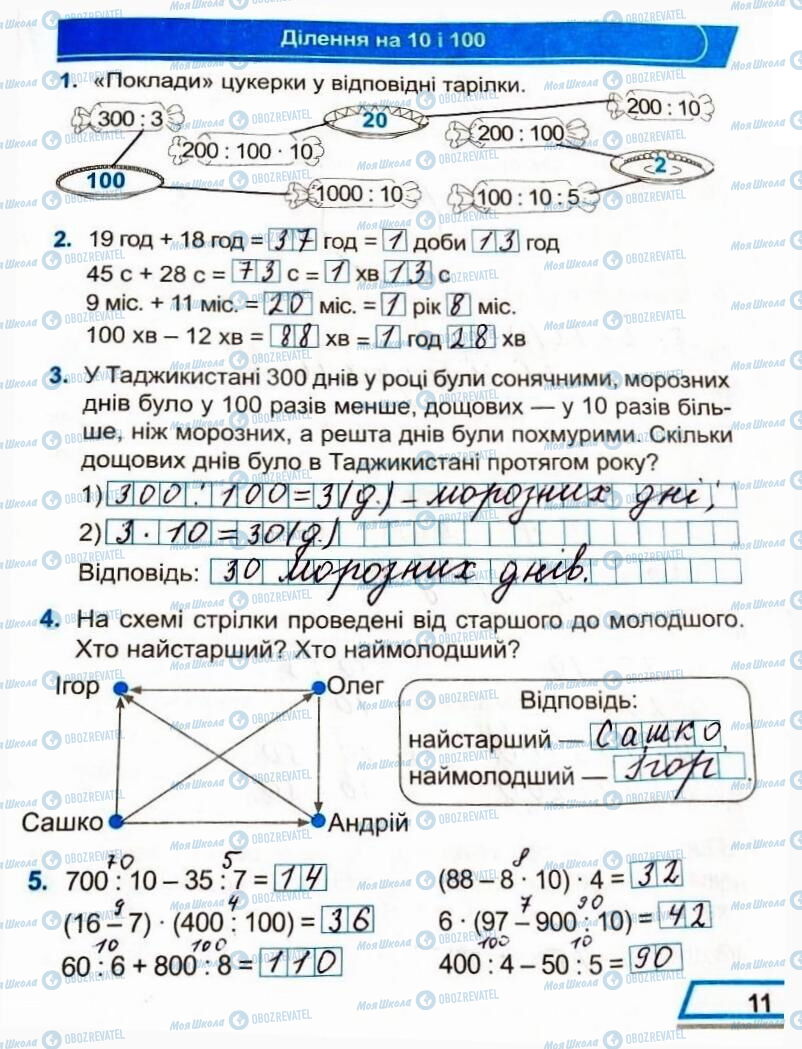 Ділення на 10 і 100
1. «Поклади» цукерки у відповідні тарілки.
300 : 3
200 : 100 · 10
20
200 : 100
200 : 10
2
100
1000 : 10
100 : 10 : 5
2. 19 год + 18 год = 37 год = 1 доби 13 год
45 с + 28 с = 73 с = 1 хв 13 с
9 міс. + 11 міс. = 20 міс. = 1 рік 8 міс.
100 хв – 12 хв = 88 хв = 1 год 28 хв
3. У Таджикистані 300 днів у році були сонячними, морозних
днів було у 100 разів менше, дощових — у 10 разів біль-
ше, ніж морозних, а решта днів були похмурими. Скільки
дощових днів було в Таджикистані протягом року?
1) 300 : 100 = 3 (д.) – морозних дні;
2) 3 · 10 = 30 (д.)
Відповідь: 30 морозних днів.
4. На схемі стрілки проведені від старшого до молодшого.
Хто найстарший? Хто наймолодший?
Ігор
Олег
Сашко
Андрій
Відповідь:
найстарший — Сашко,
наймолодший — Ігор.
70 5
5. 700 : 10 – 35 : 7 = 14
9 4
(16 – 7) · (400 : 100) = 36
10 100
60 : 6 + 800 : 8 = 110
8
(88 – 8 · 10) · 4 = 32
7 90
6 · (97 – 900 : 10) = 42
100 10
400 : 4 – 50 : 5 = 90
11
Моя Школа OBOZREVATEL